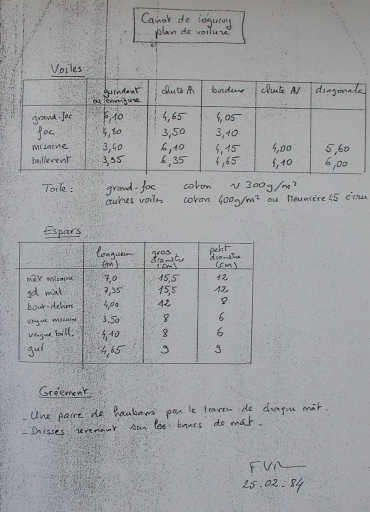 Canot de Loguivy
plan de voilure
Voiles
guindant ou envergure chute AR bordure chute AV diagonale
grand-foc 6,10 4,65 4,05
foc 4,80 3,50 3,10
misaine 3,40 6,10 4,15 4,00 5,60
taillevent 3,95 6,35 4,65 4,10 6,00
Toile : grand-foc coton ~ 300 g/m²
autres voiles coton 400g/m² ou Meunière 45 écru
Espars
longueur (m) gros diamètre (cm) petit diamètre (cm)
mât misaine 7,0 15,5 12
gd mât 7,35 15,5 12
bout-dehors 4,00 12 8
vergue misaine 3,50 8 6
vergue taill. 4,10 8 6
gui 4,65 9 9
Gréement
- Une paire de haubans par le travers de chaque mât.
- Drisses revenant sur les bancs de mât.
25.02.84